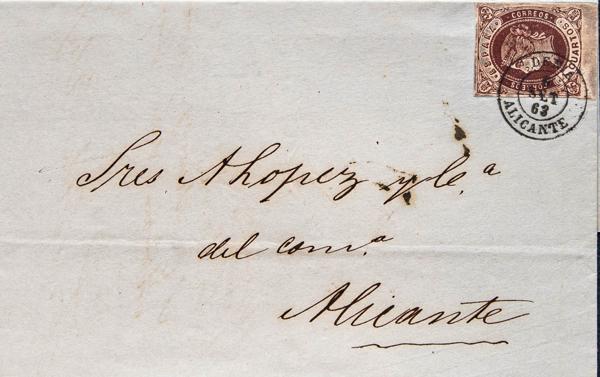 CORREOS
CUARTOS
SET
63
ALICANTE
Sres. A Lopez y Cª
del comº
Alicante